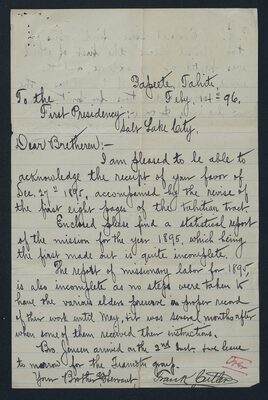 Papeete, Tahiti,
Feby. 14th 96.
To the
First Presidency
Salt Lake City.
Dear Bretheren:-
I am pleased to be able to
acknowledge the receipt of your favor of
Dec. 27th 1895, accompanied by the revise of
the first eight pages of the tahitian tract.
Enclosed please find a statistical report
of the mission for the year 1895, which being
the first made out is quite incomplete.
The report of missionary labor for 1895
is also incomplete as no steps were taken to
have the various elders preserve a proper record
of their work until May, & it was several months after
when some of them received their instructions.
Bro. Jensen arrived on the 2nd Inst. & we leave
to morrow for the Tuamotu group.
Your Brother & Servant
Frank Cutler